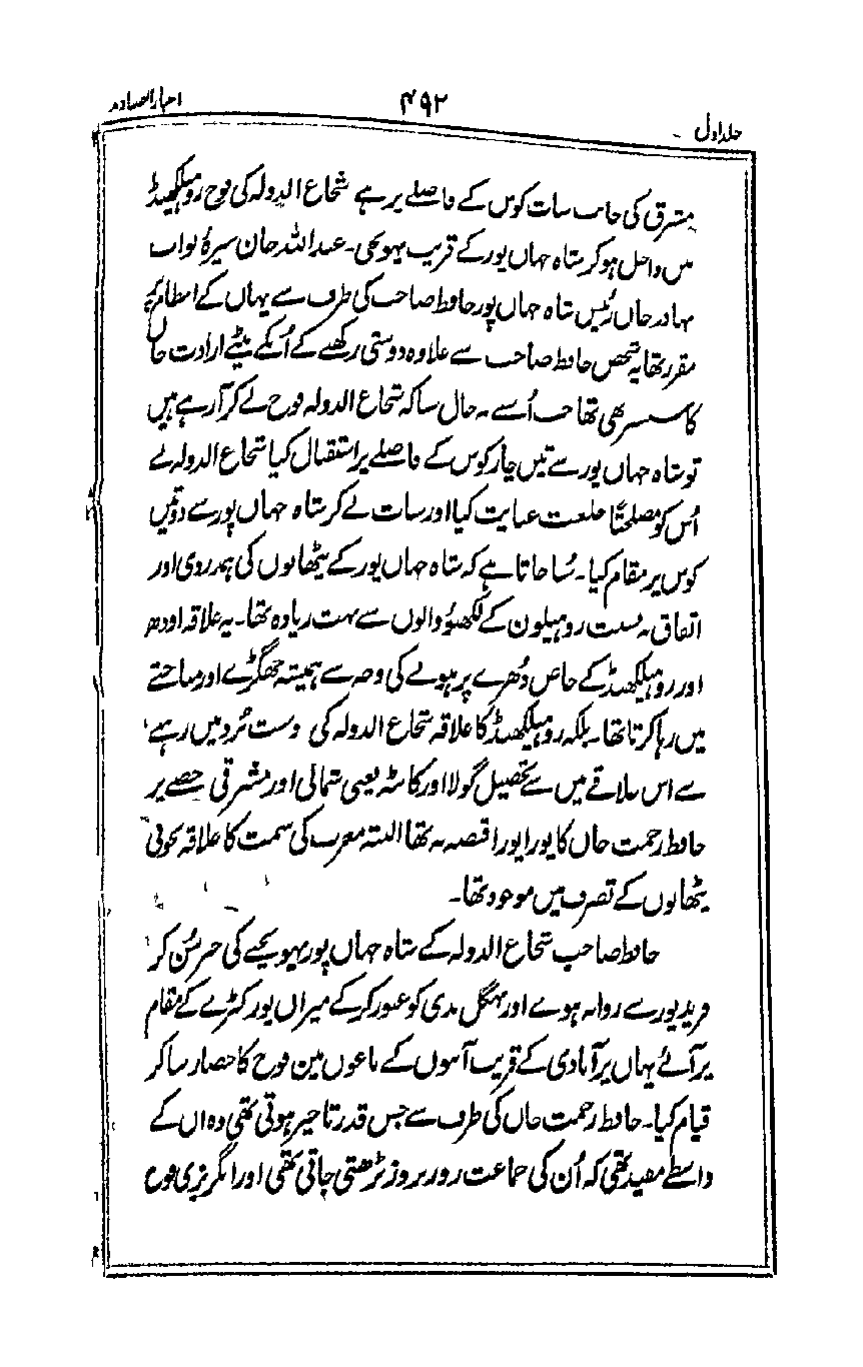 جلد اول
۴۹۲
اخبار الصنادید
مشرق کی جانب سات کوس کے فاصلے پر ہے شجاع الدولہ کی فوج روہیلکھنڈ
میں داخل ہو کر شاہ جہاں پور کے قریب پہونچی۔ عبد اللہ خان نبیرۂ نواب
بہادر خاں رئیس شاہ جہاں پور حافظ صاحب کی طرف سے یہاں کے انتظام پر
مقرر تھا یہ شخص حافظ صاحب سے علاوہ دوستی رکھنے کے اُنکے بیٹے ارادت خاں
کا سسر بھی تھا جب اُسنے یہ حال سنا کہ شجاع الدولہ فوج لے کر آرہے ہیں
تو شاہ جہاں پور سے تین چار کوس کے فاصلے پر استقبال کیا شجاع الدولہ نے
اُس کو مصلحتاً خلعت عنایت کیا اور سات لے کر شاہ جہاں پور سے دو تین
کوس پر مقام کیا۔ سُنا جاتا ہے کہ شاہ جہاں پور کے پٹھانوں کی ہمدردی اور
اتفاق بہ نسبت روہیلون کے لکھنؤ والوں سے بہت زیادہ تھا۔ یہ علاقہ اودھ
اور روہیلکھنڈ کے خاص دُھرے پر ہونے کی وجہ سے ہمیشہ جھگڑے اور مباحثے
میں رہا کرتا تھا۔ بلکہ روہیلکھنڈ کا علاقہ شجاع الدولہ کی دست بُرد میں رہنے
سے اس علاقے میں سے تحصیل گولا اور کانٹہ یعنی شمالی اور مشرقی حصے پر
حافظ رحمت خاں کا پورا پورا قبضہ نہ تھا البتہ مغرب کی سمت کا علاقہ بخوبی
پٹھانوں کے تصرف میں موجود تھا۔
حافظ صاحب شجاع الدولہ کے شاہ جہاں پور پہونچنے کی خبر سُن کر
فرید پور سے روانہ ہوے اور بہگل ندی کو عبور کرکے میراں پور کٹرے کے مقام
پر آئے یہاں پر آبادی کے قریب آموں کے باغوں مین فوج کا حصار بنا کر
قیام کیا۔ حافظ رحمت خاں کی طرف سے جس قدر تاخیر ہوتی تھی وہ اُن کے
واسطے مفید تھی کہ اُن کی جماعت روز بروز بڑھتی جاتی تھی اور انگریزی فوج